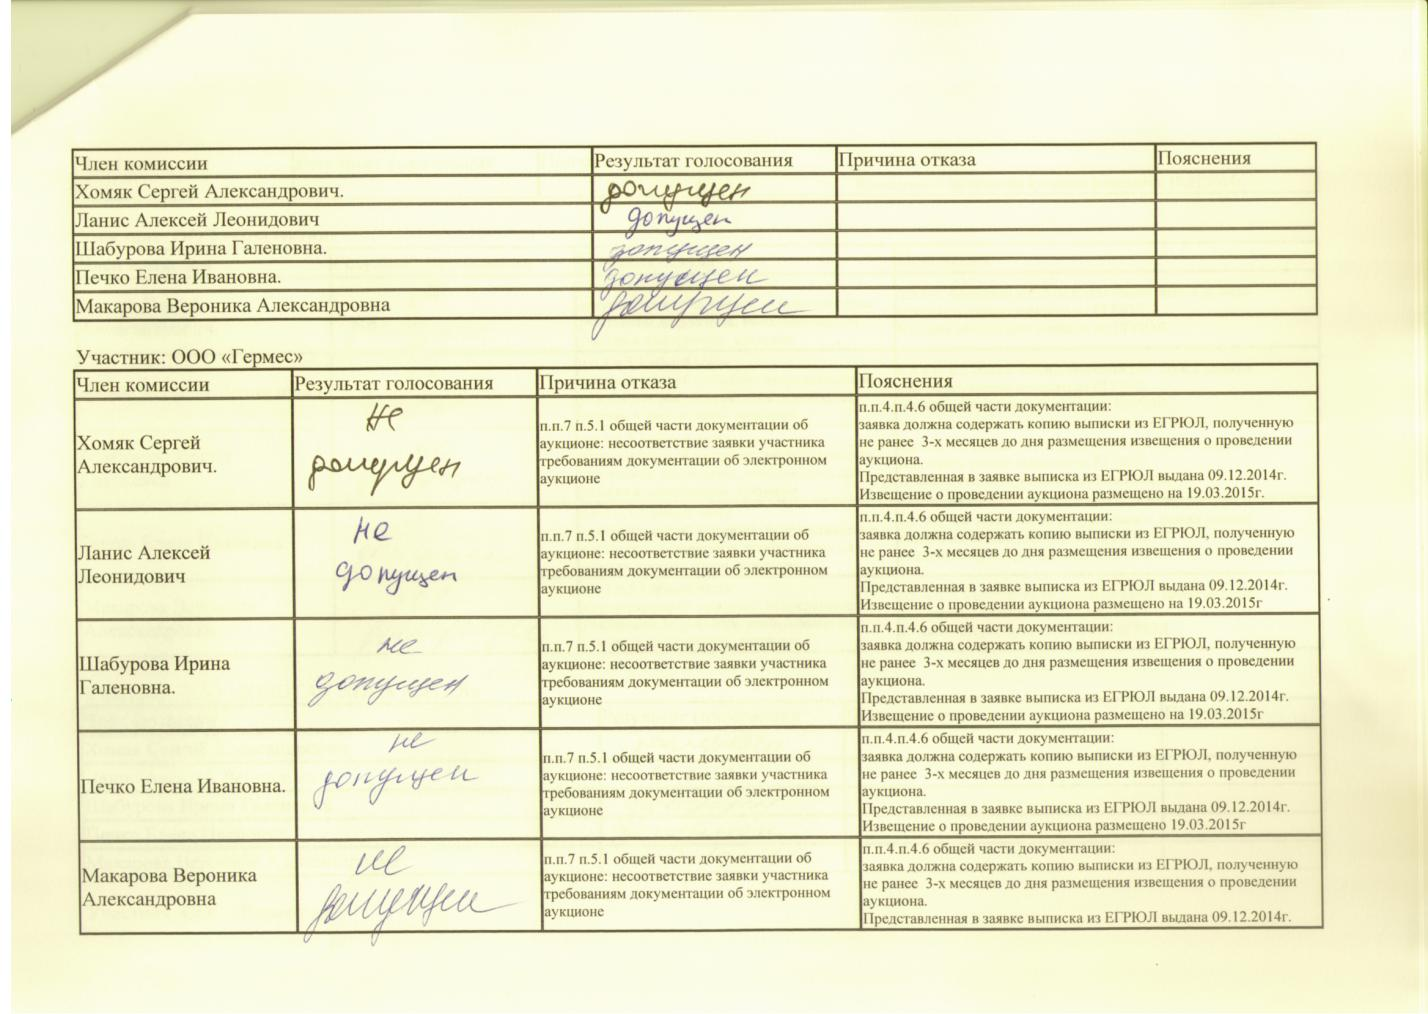 Член комиссии Результат голосования Причина отказа Пояснения
Хомяк Сергей Александрович. допущен
Ланис Алексей Леонидович допущен
Шабурова Ирина Галеновна. допущен
Печко Елена Ивановна. допущен
Макарова Вероника Александровна допущен
Участник: ООО «Гермес»
Член комиссии Результат голосования Причина отказа Пояснения
Хомяк Сергей
Александрович.
не
допущен
п.п.7 п.5.1 общей части документации об
аукционе: несоответствие заявки участника
требованиям документации об электронном
аукционе
п.п.4.п.4.6 общей части документации:
заявка должна содержать копию выписки из ЕГРЮЛ, полученную
не ранее 3-х месяцев до дня размещения извещения о проведении
аукциона.
Представленная в заявке выписка из ЕГРЮЛ выдана 09.12.2014г.
Извещение о проведении аукциона размещено на 19.03.2015г.
Ланис Алексей
Леонидович
не
допущен
п.п.7 п.5.1 общей части документации об
аукционе: несоответствие заявки участника
требованиям документации об электронном
аукционе
п.п.4.п.4.6 общей части документации:
заявка должна содержать копию выписки из ЕГРЮЛ, полученную
не ранее 3-х месяцев до дня размещения извещения о проведении
аукциона.
Представленная в заявке выписка из ЕГРЮЛ выдана 09.12.2014г.
Извещение о проведении аукциона размещено на 19.03.2015г
Шабурова Ирина
Галеновна.
не
допущен
п.п.7 п.5.1 общей части документации об
аукционе: несоответствие заявки участника
требованиям документации об электронном
аукционе
п.п.4.п.4.6 общей части документации:
заявка должна содержать копию выписки из ЕГРЮЛ, полученную
не ранее 3-х месяцев до дня размещения извещения о проведении
аукциона.
Представленная в заявке выписка из ЕГРЮЛ выдана 09.12.2014г.
Извещение о проведении аукциона размещено на 19.03.2015г
Печко Елена Ивановна.
не
допущен
п.п.7 п.5.1 общей части документации об
аукционе: несоответствие заявки участника
требованиям документации об электронном
аукционе
п.п.4.п.4.6 общей части документации:
заявка должна содержать копию выписки из ЕГРЮЛ, полученную
не ранее 3-х месяцев до дня размещения извещения о проведении
аукциона.
Представленная в заявке выписка из ЕГРЮЛ выдана 09.12.2014г.
Извещение о проведении аукциона размещено 19.03.2015г
Макарова Вероника
Александровна
не
допущен
п.п.7 п.5.1 общей части документации об
аукционе: несоответствие заявки участника
требованиям документации об электронном
аукционе
п.п.4.п.4.6 общей части документации:
заявка должна содержать копию выписки из ЕГРЮЛ, полученную
не ранее 3-х месяцев до дня размещения извещения о проведении
аукциона.
Представленная в заявке выписка из ЕГРЮЛ выдана 09.12.2014г.